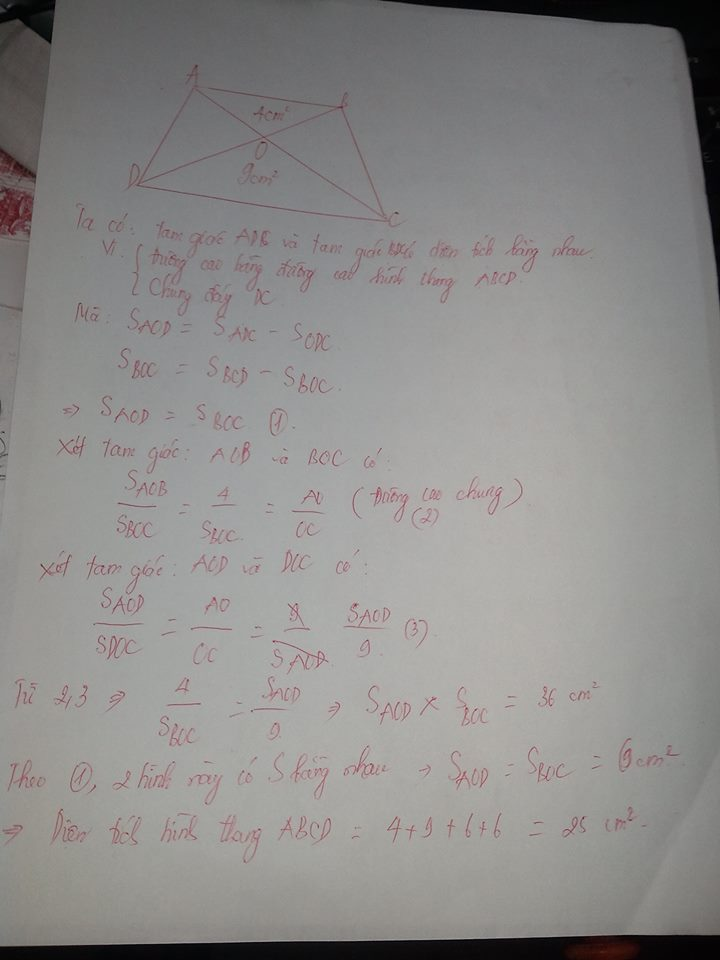 A
B
4cm²
O
9cm²
D
C
Ta có: tam giác ADC và tam giác BDC có diện tích bằng nhau.
Vì: { đường cao bằng đường cao hình thang ABCD.
{ Chung đáy DC.
Mà: S_AOD = S_ADC - S_ODC.
S_BOC = S_BCD - S_BOC.
=> S_AOD = S_BOC ①.
Xét tam giác: AOB và BOC có:
S_AOB / S_BOC = 4 / S_BOC. = AO / OC (Đường cao chung) (2)
Xét tam giác: AOD và DOC có:
S_AOD / S_DOC = AO / OC = S_AOD / 9 (3).
Từ 2,3 => 4 / S_BOC = S_AOD / 9 => S_AOD × S_BOC = 36 cm²
Theo ①, 2 hình này có S bằng nhau → S_AOD = S_BOC = 6cm².
=> Diện tích hình thang ABCD = 4+9+6+6 = 25 cm².